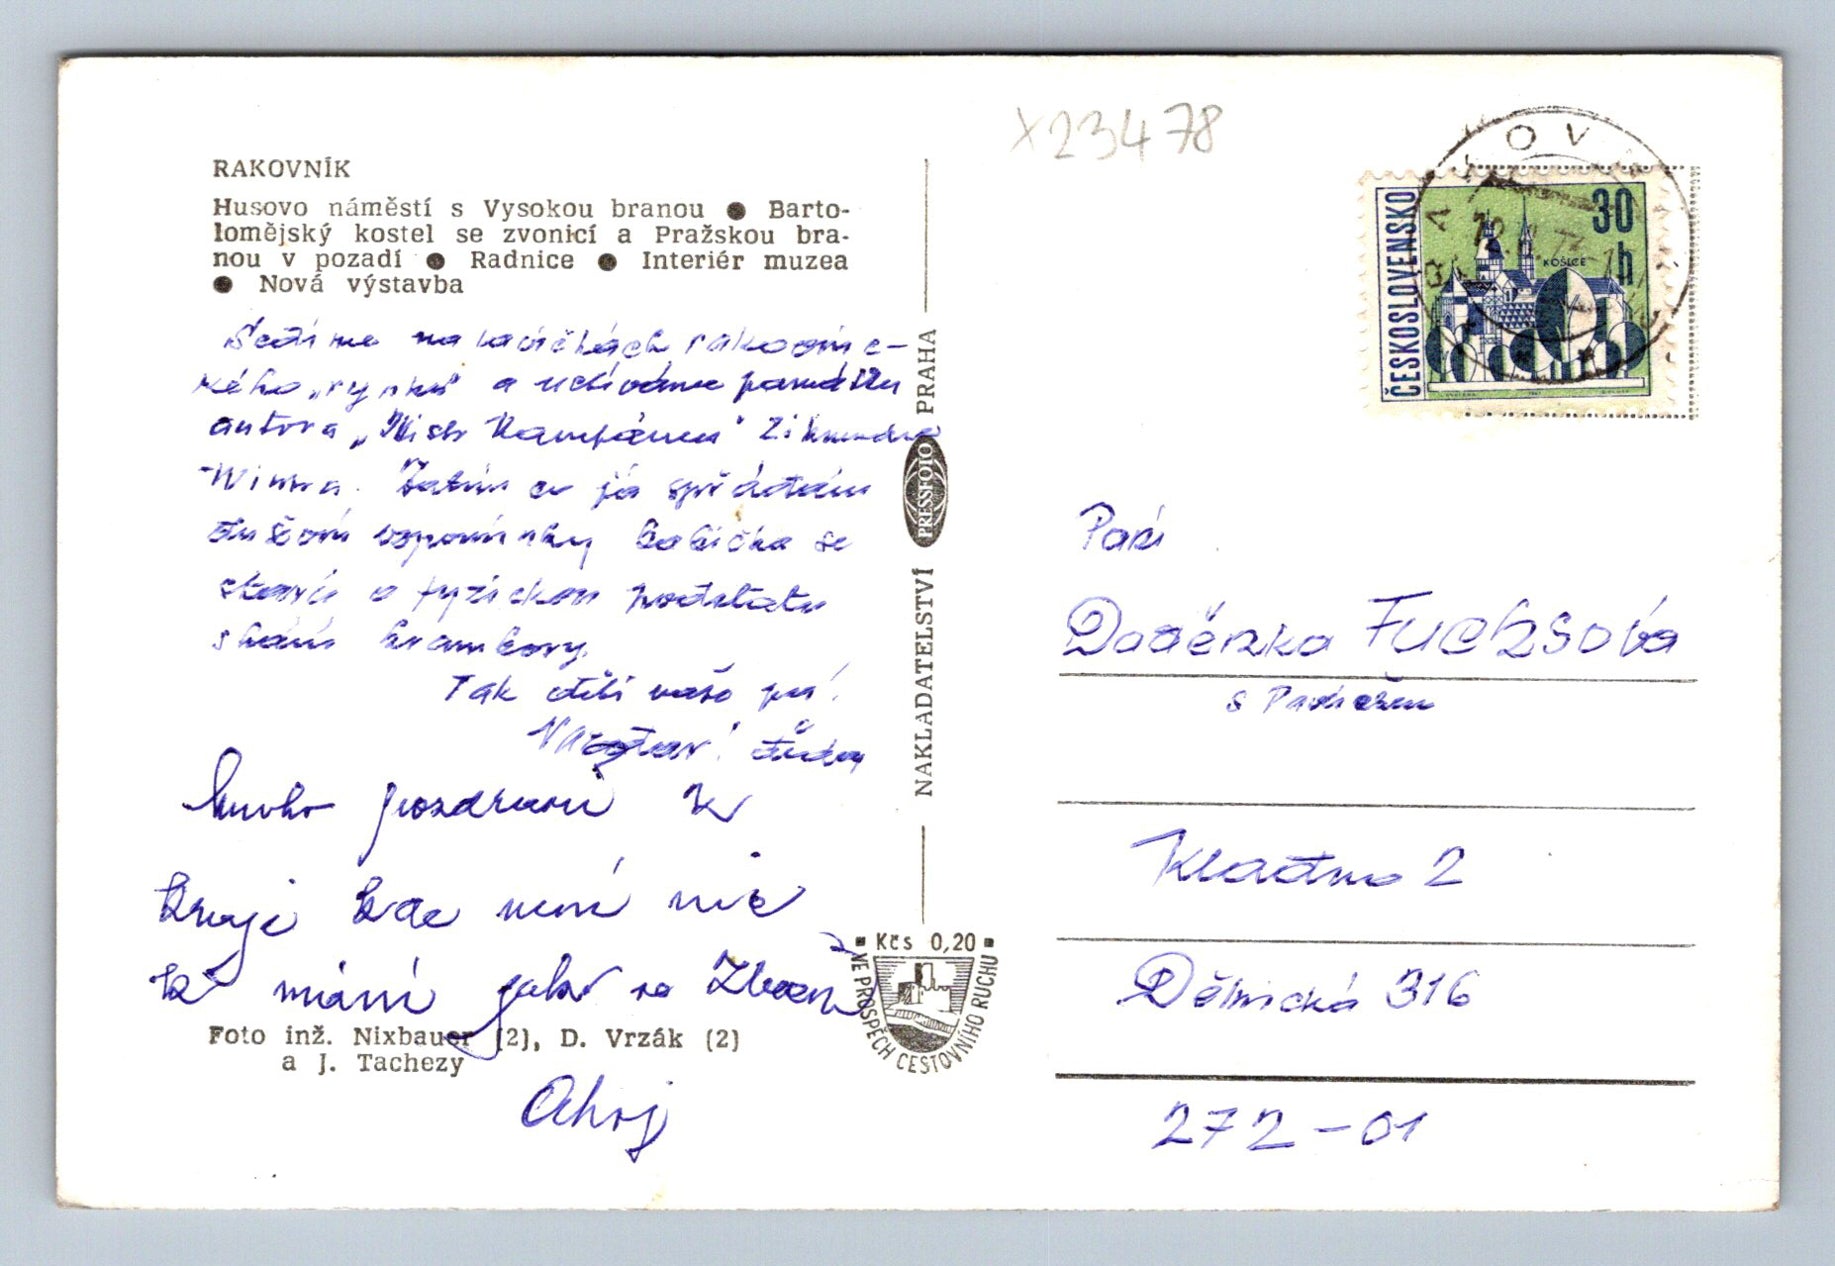 x23478
RAKOVNÍK
Husovo náměstí s Vysokou branou ● Barto-
lomějský kostel se zvonicí a Pražskou bra-
nou v pozadí ● Radnice ● Interiér muzea
● Nová výstavba
Sedíme na lavičkách rakovnic-
kého „rynku" a uctíváme památku
autora „Mistr Kampánus" Zikmunda
Wintra. Zatím co já spřádám
duševní vzpomínky babička se
stará o fyzickou podstatu
shání brambory.
Tak dělí vašo
děda
Mnoho pozdravů z
kraje kde není nic
k mání jako na
Ahoj
Foto inž. Nixbauer (2), D. Vrzák (2)
a J. Tachezy
NAKLADATELSTVÍ PRESSFOTO PRAHA
Kčs 0,20
VE PROSPĚCH CESTOVNÍHO RUCHU
RAKOV
ČESKOSLOVENSKO
30 h
KOŠICE
Paní
Fuchsová
s
Kladno 2
Dělnická 316
272-01